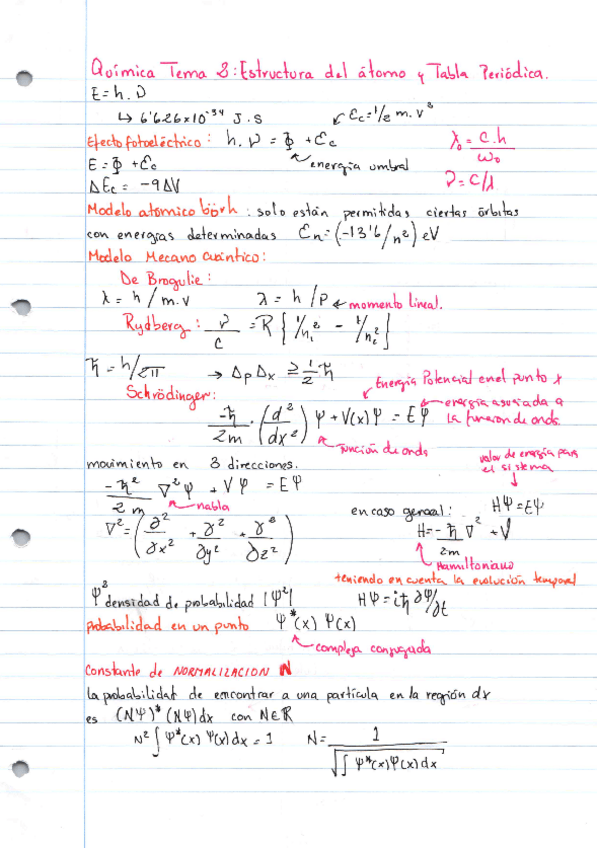 Química Tema 2: Estructura del átomo y Tabla Periódica.
E = h · ν
↳ 6'626x10^-34 J·s    Ec = 1/2 m·v^2
Efecto fotoeléctrico: h·ν = Φ + Ec    λ₀ = c·h / ω₀
energía umbral
E = Φ + Ec    ν = c/λ
ΔEc = -qΔV
Modelo atómico böörh: solo están permitidas ciertas órbitas
con energías determinadas En = (-13'6/n^2) eV
Modelo Mecano cuántico:
De Brogulie:
λ = h / m·v    λ = h / P ← momento lineal.
Rydberg: ν/c = R { 1/n₁^2 - 1/n₂^2 }
ħ = h/2π → Δp Δx ≥ 1/2 ħ
Energía Potencial en el punto x
Schrödinger:
energía asociada a la función de onda.
-ħ/2m · (d^2/dx^2) Ψ + V(x)Ψ = EΨ
función de onda
movimiento en 3 direcciones.
valor de energía para el sistema
-ħ^2/2m ∇^2Ψ + VΨ = EΨ
nabla
en caso general: HΨ = EΨ
∇^2 = (∂^2/∂x^2 + ∂^2/∂y^2 + ∂^2/∂z^2)    H = -ħ/2m ∇^2 + V
Hamiltoniano
teniendo en cuenta la evolución temporal
Ψ^2 densidad de probabilidad |Ψ^2|    HΨ = iħ ∂Ψ/∂t
probabilidad en un punto Ψ*(x) Ψ(x)
compleja conjugada
Constante de NORMALIZACION N
la probabilidad de encontrar a una partícula en la región dx
es (NΨ)* (NΨ)dx con N∈R
N^2 ∫ Ψ*(x) Ψ(x) dx = 1    N = 1 / √∫ Ψ*(x)Ψ(x) dx